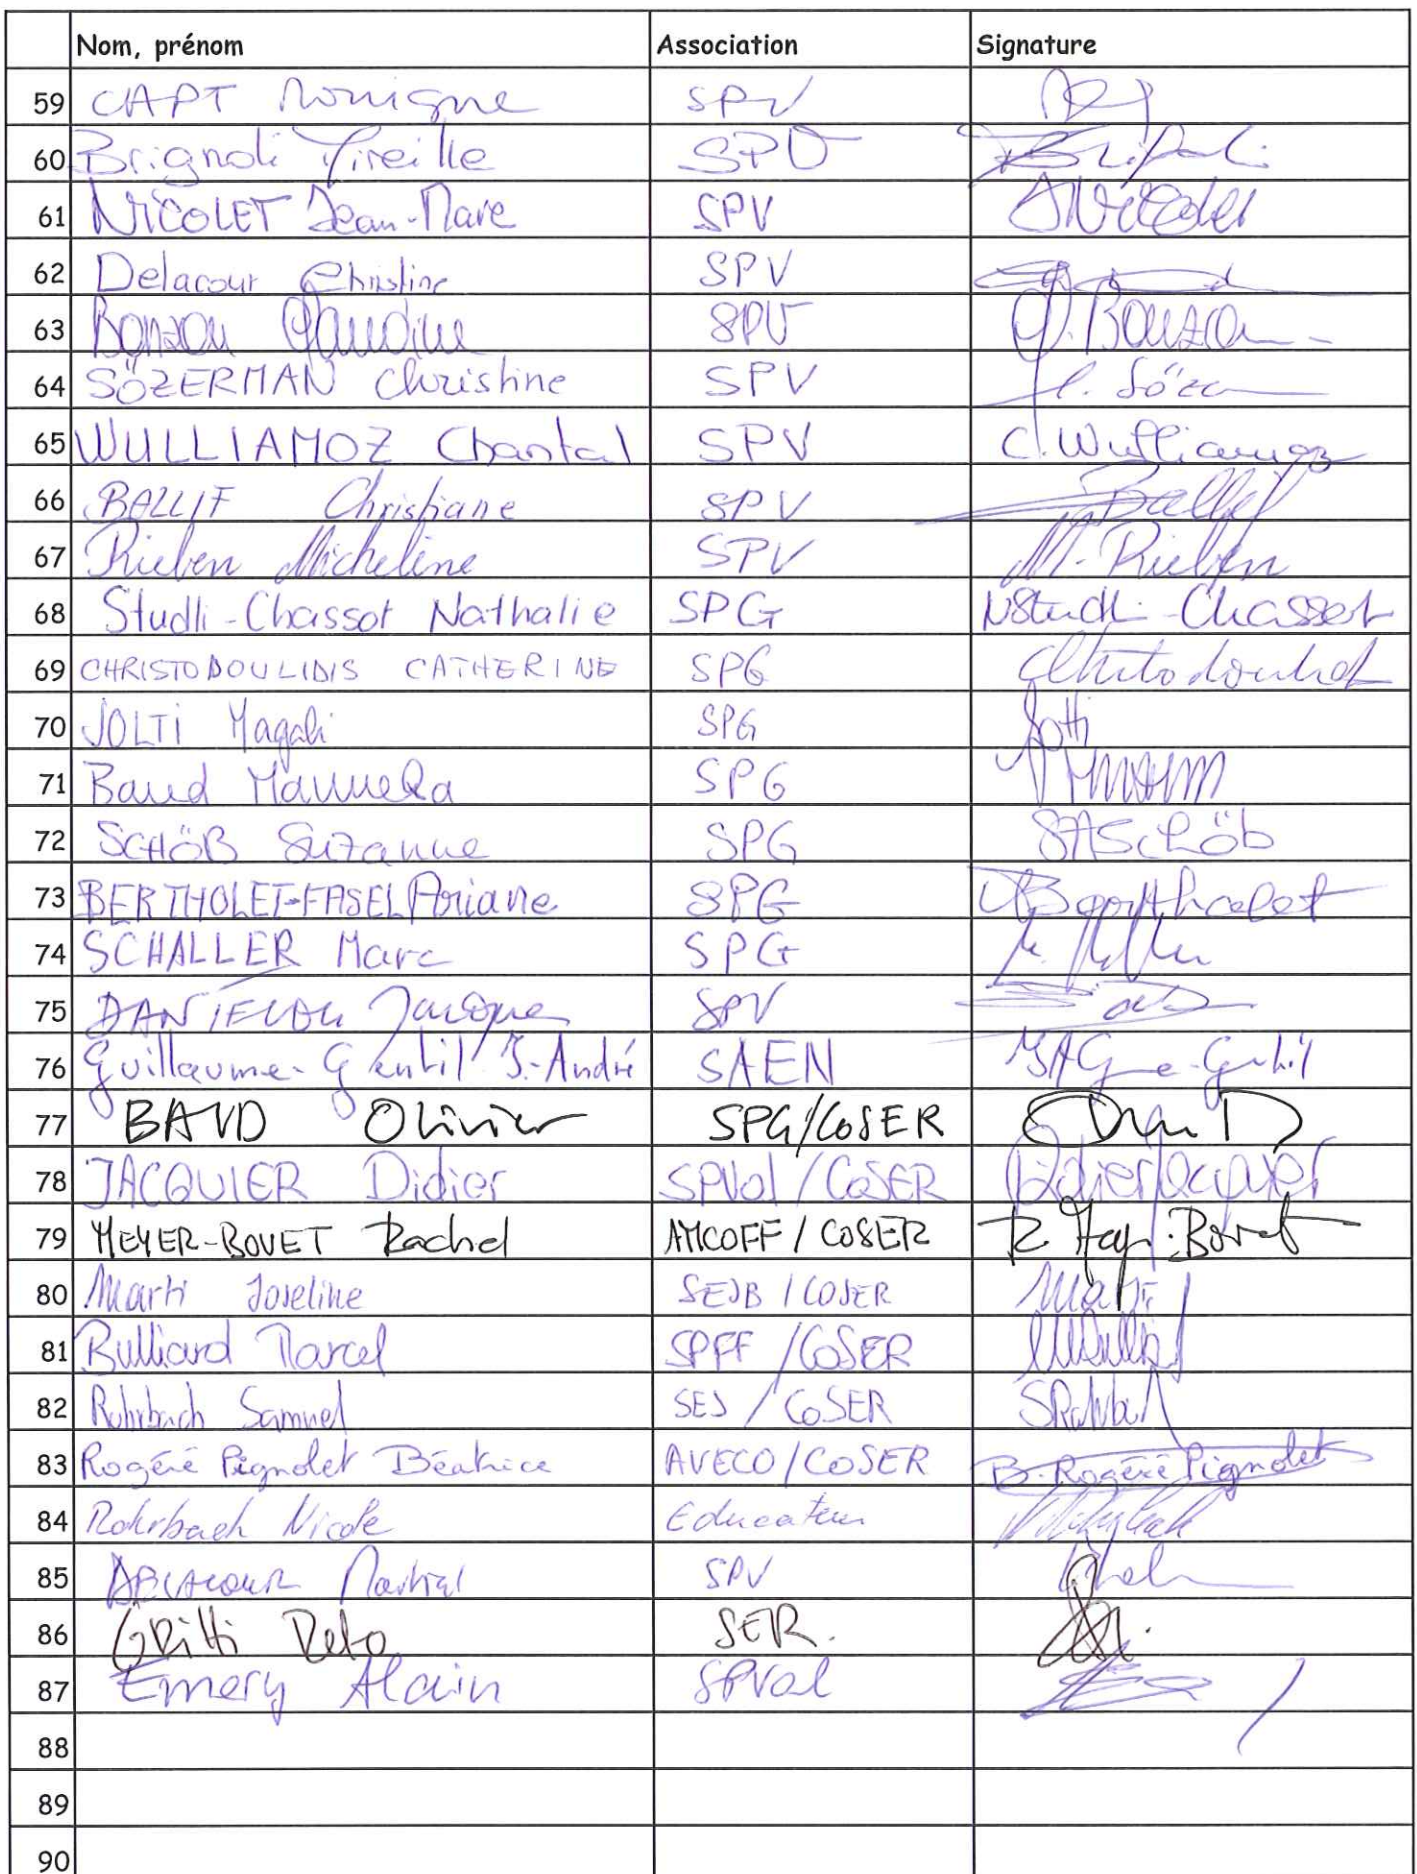 Nom, prénom Association Signature
59 CAPT Monique SPV
60 Brignoli Mireille SPV
61 NICOLET Jean-Marc SPV
62 Delacour Christine SPV
63 Bonzon Claudine SPV C. Bonzon
64 SÖZERMAN Christine SPV
65 WULLIAMOZ Chantal SPV C. Wulliamoz
66 BALLIF Christiane SPV Ballif
67 Rieben Micheline SPV M. Rieben
68 Studli-Chassot Nathalie SPG NStudli-Chassot
69 CHRISTODOULIDIS CATHERINE SPG
70 JOLTI Magali SPG
71 Baud Manuela SPG
72 SCHÖB Suzanne SPG SASchöb
73 BERTHOLET-FASEL Ariane SPG
74 SCHALLER Marc SPG
75 SPV
76 Guillaume-Gentil J-André SAEN
77 BAUD Olivier SPG/CoSER
78 JACQUIER Didier SPVal / CoSER Didier Jacquier
79 MEYER-BOVET Rachel AMCOFF / COSER
80 Marti Joseline SEJB / COSER Marti
81 Bulliard Marcel SPFF / CoSER
82 Rohrbach Samuel SEJ / CoSER
83 Rogéré Pignolet Béatrice AVECO / CoSER B. Rogéré Pignolet
84 Rohrbach Nicole Educateur
85 DELACOUR Martial SPV
86 Gritti Reto SER.
87 Emery Alain SPVal
88
89
90